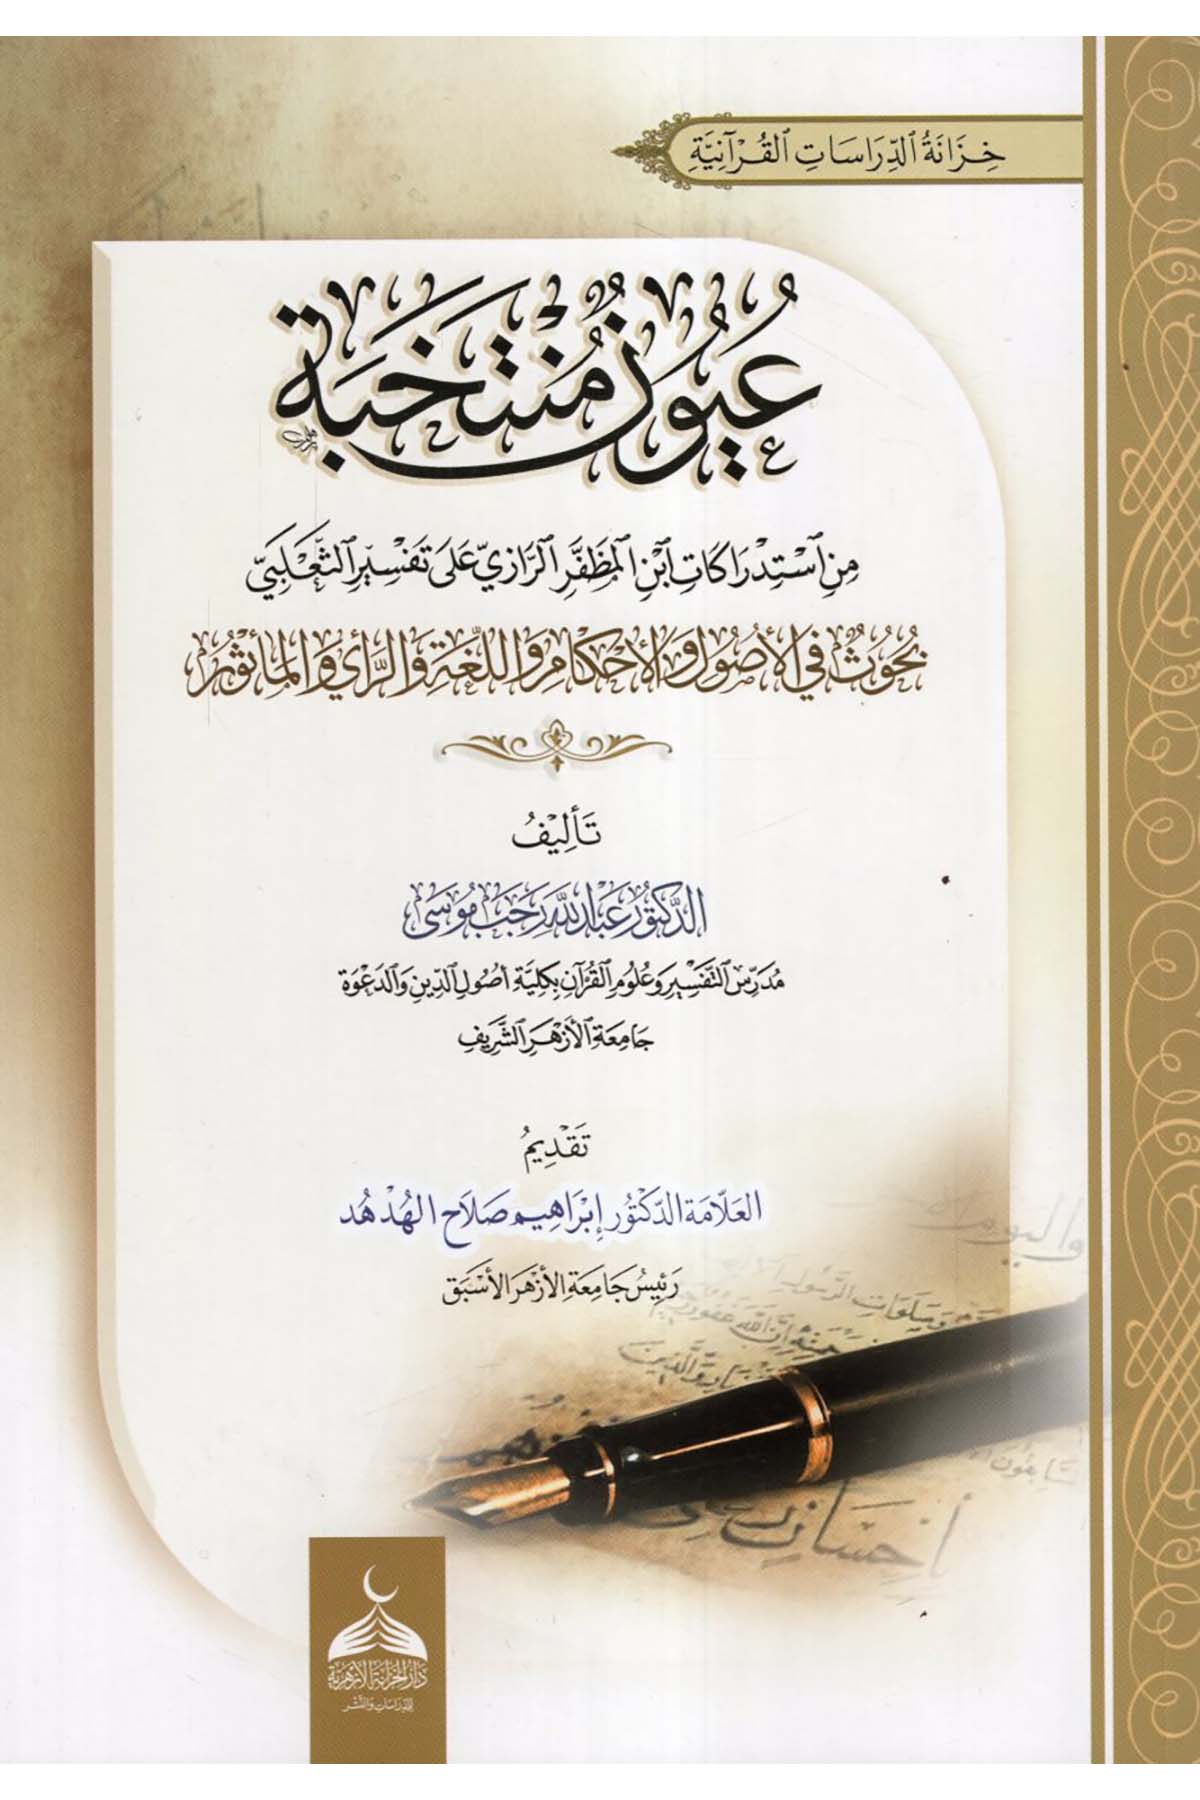 خِزَانَةُ الدِّرَاسَاتِ القُرْآنِيَّةِ
عُيُونٌ مُنْتَخَبَة
مِنِ اسْتِدْرَاكَاتِ ابْنِ المُظَفَّرِ الرَّازِيِّ عَلَى تَفْسِيرِ الثَّعْلَبِيِّ
بُحُوثٌ فِي الأُصُولِ وَالأَحْكَامِ وَاللُّغَةِ وَالرَّأْيِ وَالمَأْثُورِ
تَأْلِيفُ
الدكتور عبد الله رجب موسى
مُدَرِّسِ التَّفْسِيرِ وَعُلُومِ القُرْآنِ بِكُلِّيَّةِ أُصُولِ الدِّينِ وَالدَّعْوَةِ
جَامِعَةِ الأَزْهَرِ الشَّرِيفِ
تَقْدِيمُ
العَلَّامَة الدّكْتُور إِبْرَاهِيم صَلَاح الهُدْهُد
رَئِيسُ جَامِعَةِ الأَزْهَرِ الأَسْبَق
وَاليَوْمِ
إِحْسَان
دار الخزانة الأزهرية
للدراسات والنشر